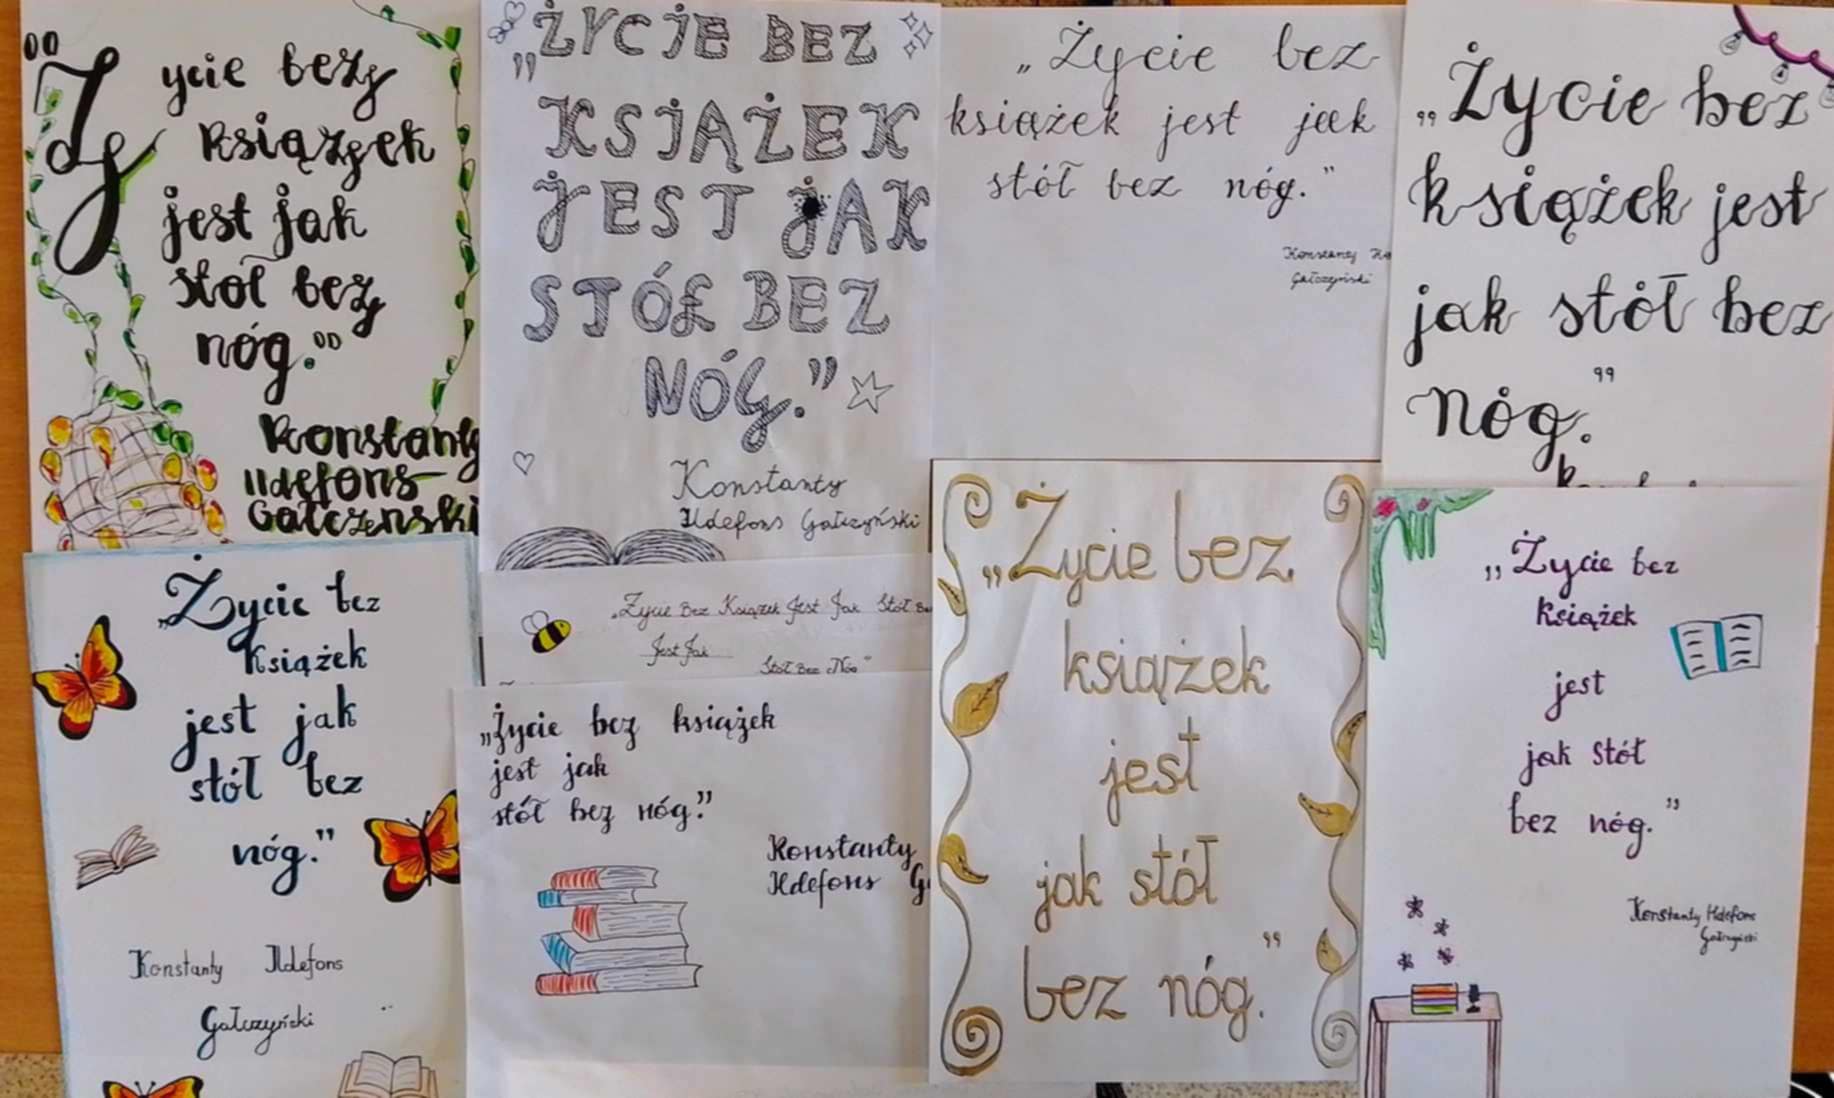 "Życie bez
książek
jest jak
stół bez
nóg."
Konstanty
Ildefons
Gałczenski
„ŻYCIE BEZ
KSIĄŻEK
JEST JAK
STÓŁ BEZ
NÓG."
Konstanty
Ildefons Gałczyński
„Życie bez
książek jest jak
stół bez nóg."
Konstanty
Gałczyński
„Życie bez
książek jest
jak stół bez
nóg."
„Życie bez
książek
jest jak
stół bez
nóg."
Konstanty Ildefons
Gałczyński
„Życie Bez Książek Jest Jak Stół
Jest Jak
Stół Bez Nóg"
„Życie bez książek
jest jak
stół bez nóg."
Konstanty
Ildefons
„Życie bez
książek
jest
jak stół
bez nóg."
„Życie bez
książek
jest
jak stół
bez nóg."
Konstanty Ildefons
Gałczyński